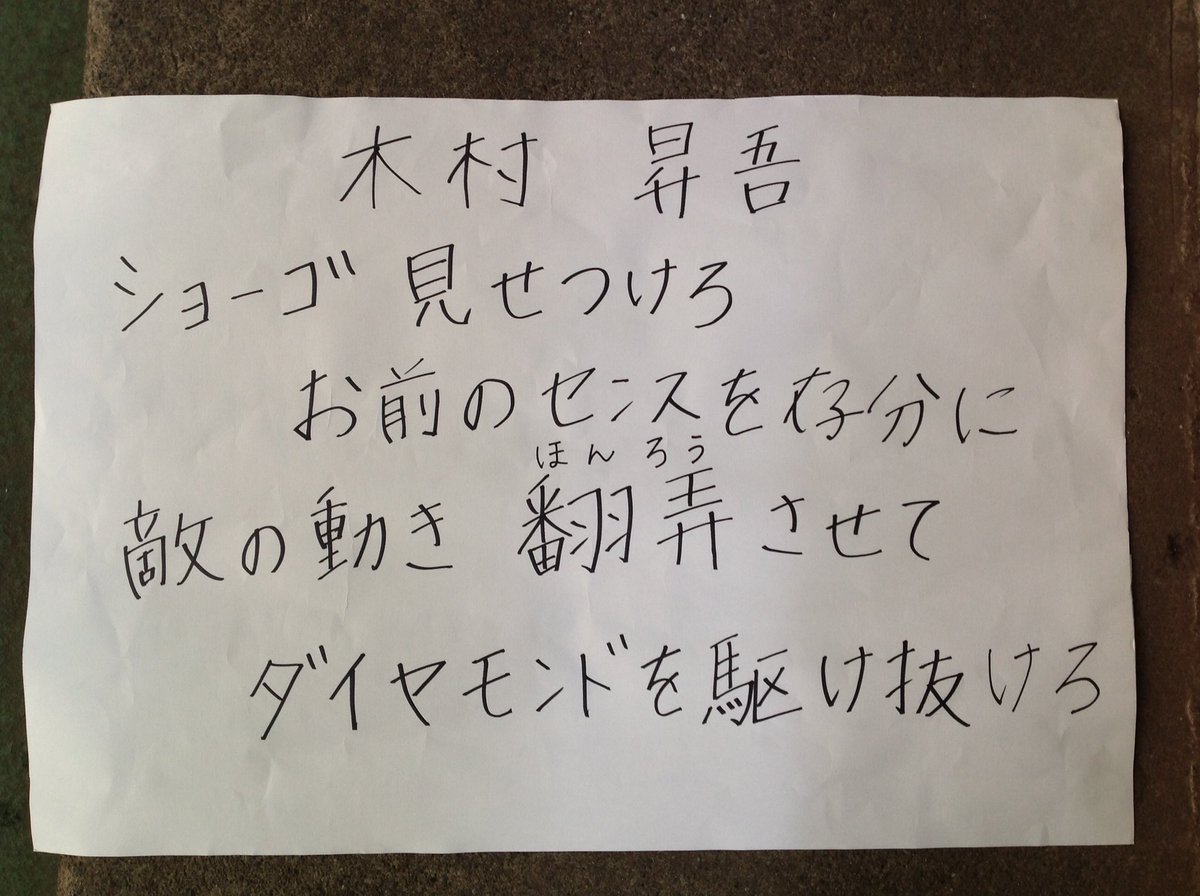 木村 昇吾
ショーゴ 見せつけろ
お前のセンスを存分に
ほんろう
敵の動き 翻弄させて
ダイヤモンドを駆け抜けろ